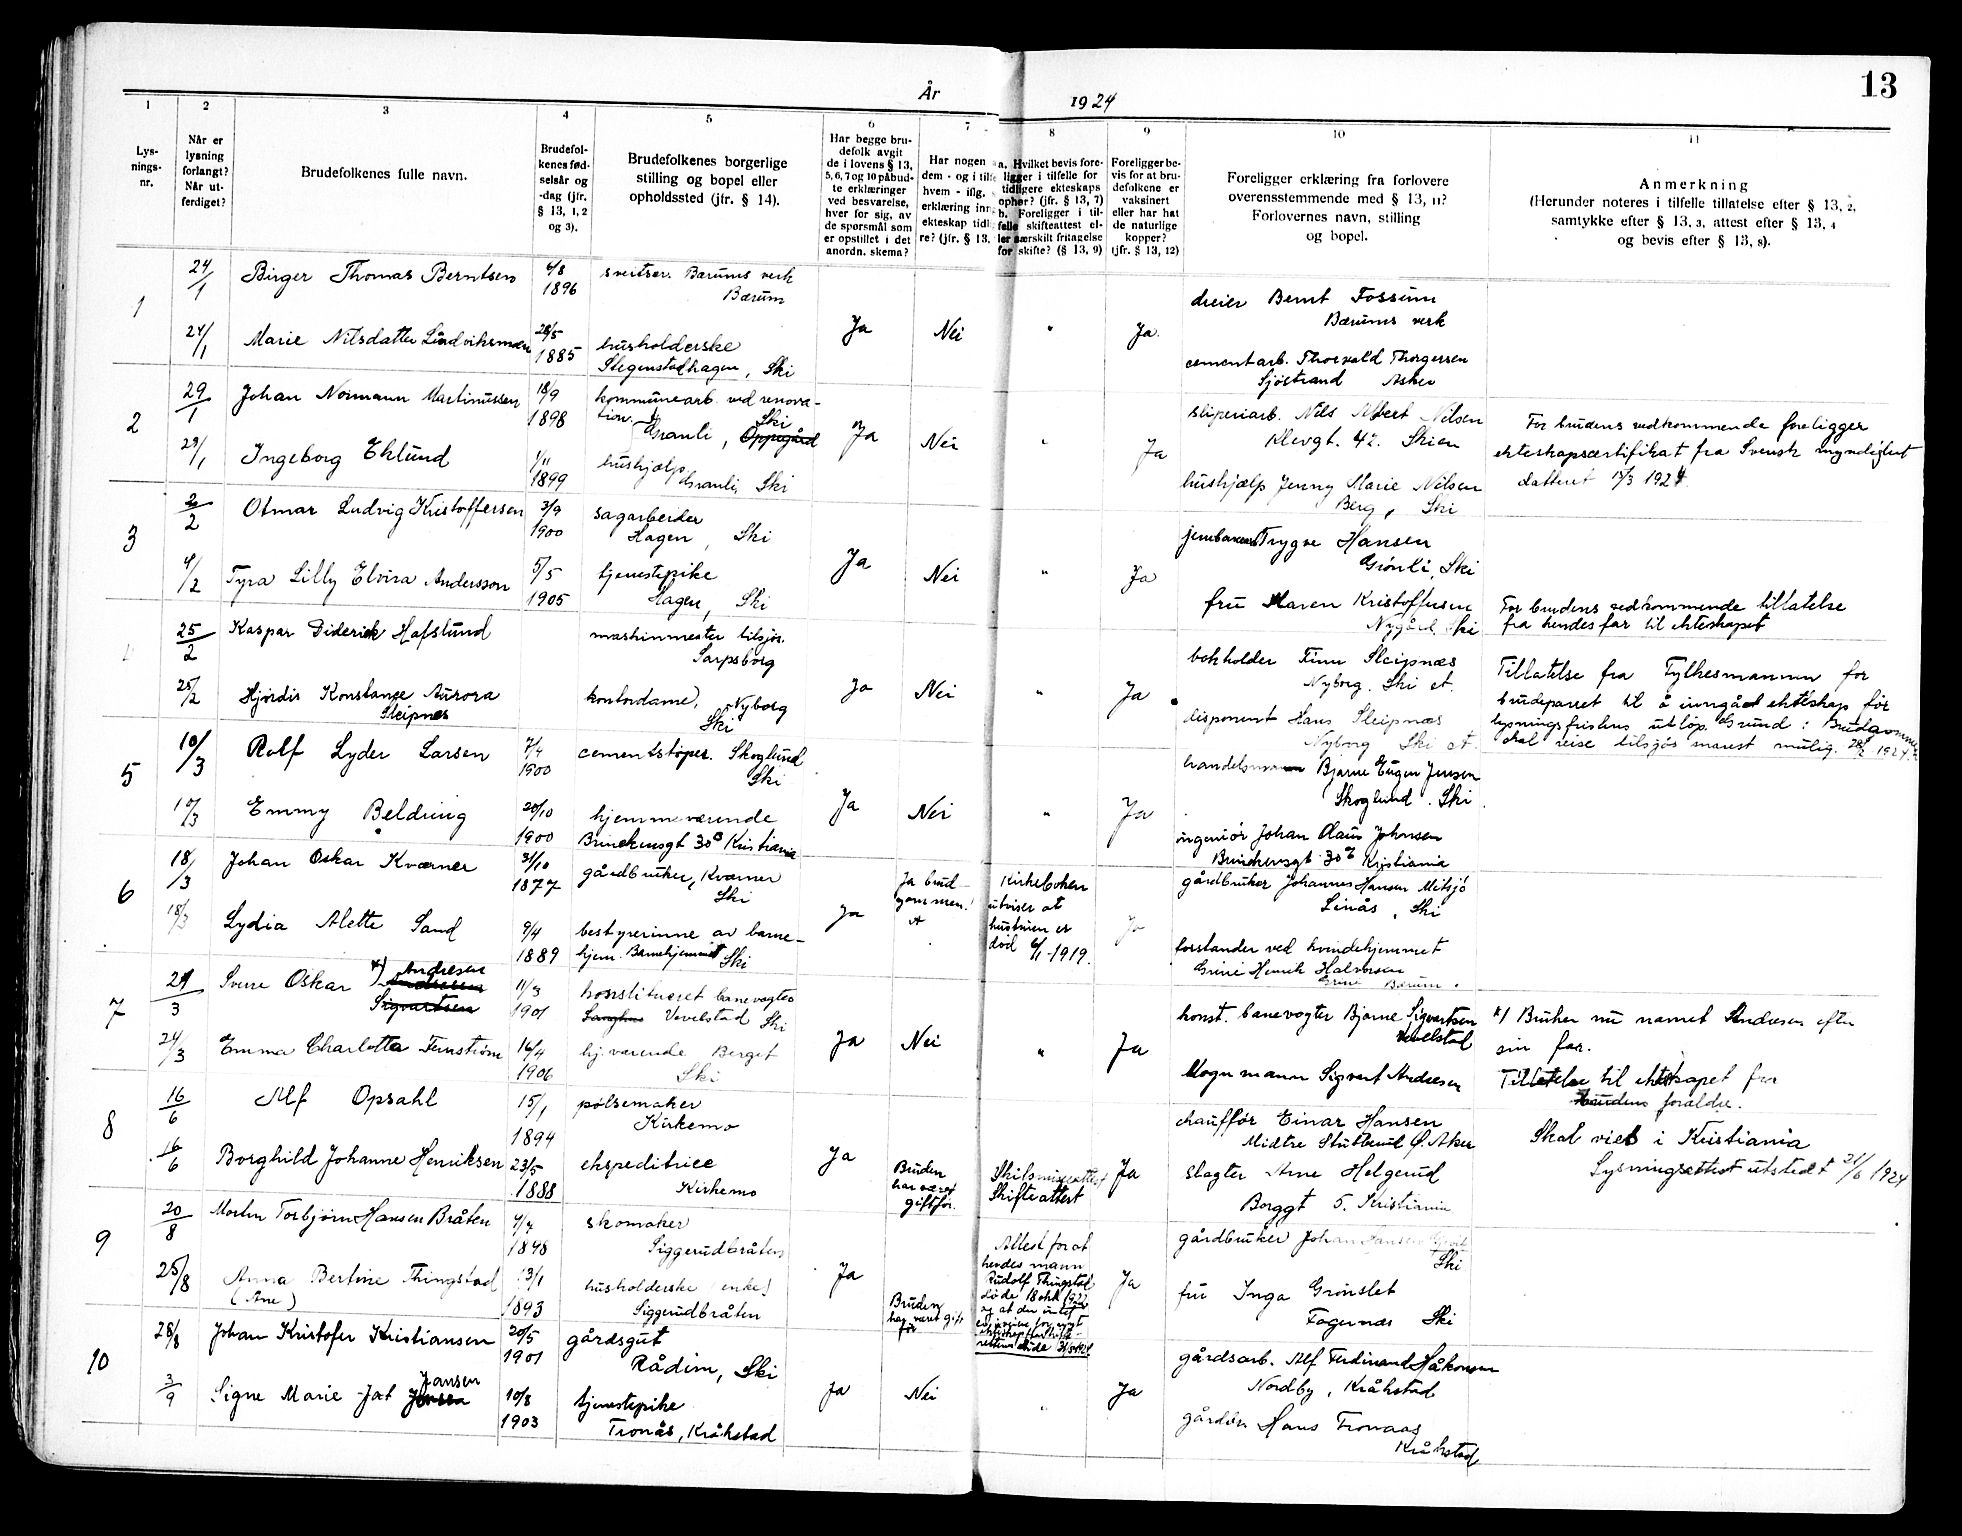 13
År 1924
1 2 3 4 5 6 7 8 9 10 11
Lys-
nings-
nr.
Når er
lysning
forlangt?
Når ut-
ferdiget?
Brudefolkenes fulle navn.
Brudefol-
kenes fød-
selsår og
-dag (jfr.
§ 13, 1, 2
og 3).
Brudefolkenes borgerlige
stilling og bopel eller
opholdssted (jfr. § 14).
Har begge bru-
defolk avgit
de i lovens § 13,
5, 6, 7 og 10 påbud-
te erklæringer
ved besvarelse,
hver for sig, av
de spørsmål som
er opstillet i det
anordn. skema?
Har nogen a
dem - og i tilfe
hvem - iflg.
erklæring inn
ekteskap tidli
re? (jfr. § 13,
a. Hvilket bevis fore-
ligger i tilfelle for
tidligere ekteskaps
ophør? (jfr. § 13, 7)
b. Foreligger i til-
felle skifteattest el-
ler særskilt fritagelse
for skifte? (§ 13, 9)
Foreligger be-
vis for at bru-
defolkene er
vaksinert
eller har hat
de naturlige
kopper?
(jfr. § 13, 12)
Foreligger erklæring fra forlovere
overensstemmende med § 13, 11?
Forlovernes navn, stilling
og bopel.
Anmerkning
(Herunder noteres i tilfelle tillatelse efter § 13, 2,
samtykke efter § 13, 3, attest efter § 13, 4
og bevis efter § 13, 8).
1
24/1 Birger Thomas Berntsen 6/8 1896 sveitser. Bærums verk
Bærum
24/1 Marie Nilsdatter 28/5 1885 husholderske
Stegenstadhagen, Ski
Ja Nei " Ja.
dreier Bernt Fossum
Bærums verk
cementarb. Thorvald Thorgersen
Sjøstrand Asker
2
29/1 Johan Normann Martinussen 18/9 1898 kommunearb. ved renova-
tion. Ski
Granli, Oppegård
29/1 Ingeborg Eklund 1/11 1899 hushjælp
Granli, Ski
Ja Nei " Ja
sliperiarb. Nils Albert Nilsen
Klevgt. 42. Skien
hushjælp Jenny Marie Nilsen
Berg, Ski
For brudens vedkommende foreligger
ekteskapscertifikat fra Svensk myndighet
datteret 1924
3
2/2 Otmar Ludvig Kristoffersen 3/9 1900 sagarbeider
Hagen, Ski
4/2 Tyra Lilly Elvira Andersson 5/5 1905 tjenestepike
Hagen, Ski
Ja Nei " Ja
Trygve Hansen
Grønli, Ski
fru Maren Kristoffersen
Nygård, Ski
For brudens vedkommende tillatelse
fra hendes far til ekteskapet
4
25/2 Kaspar Diderick Hafslund maskinmester tilsjøs.
Sarpsborg
25/2 Hjørdis Konstanse Aurora
Sleipnes
kontordame, Nyborg
Ski
Ja Nei " Ja
bokholder Finn Sleipnæs
Nyborg. Ski st.
disponent Hans Sleipnæs
Nyborg Ski st.
Tillatelse fra Fylkesmannen for
brudeparret til å inngå ekteskap før
lysningsfristens utløp. Grund: Brudgommen
skal reise tilsjøs snarest mulig. 28/2 1924.
5
10/3 Rolf Lyder Larsen 7/4 1900 cementstøper. Skoglund
Ski
10/3 Emmy Beldring 20/10 1900 hjemmeværende
30 B Kristiania
Ja Nei " Ja
handelsmann Bjarne Eugen Jensen
Skoglund. Ski.
ingeniør Johan Olaus Johnsen
30 B Kristiania
6
18/3 Johan Oskar Kværner 31/10 1877 gårdbruker, Kværner
Ski
18/3 Lydia Alette Sand 9/4 1889 bestyrerinne av barne-
hjem. Barnehjemmet Ski
Ja
Ja brud-
gommen.
Kirkeboken
utviser at
hustruen er
død 6/1-1919.
Ja
gårdbruker Johannes Hansen Midsjø
Linås, Ski
forstander ved kvindehjemmet
Grini Henrik Halvorsen
Grini Bærum.
7
24/3 Sverre Oskar *) Andresen
Andresen
Sigvartsen
11/3 1901 konstitueret banevogter
Langhus Vevelstad Ski
24/3 Emma Charlotte Fernstrøm 16/4 1906 hj. værende Berget
Ski
Ja Nei " Ja
konst. banevogter Bjarne Sigvartsen
Vevelstad
Vognmann Sigvart Andresen
*) Bruker nu navnet Andresen efter
sin far.
Tillatelse til ekteskapet fra
brudens forældre.
8
16/6 Alf Opsahl 15/1 1894 pølsemaker
Kirkemo
16/6 Borghild Johanne Henriksen 23/5 1888 ekspeditrice
Kirkemo
Ja
Bruden
har været
gift før.
Skilsmisseattest
Skifteattest
Ja
chauffør Einar Hansen
Midtre Ø. Aker
slagter Arne Helgerud
Borggt 5. Kristiania
Skal vies i Kristiania
Lysningsattest utstedt 21/6 1924
9
20/8 Morten Torbjørn Hansen Bråten 4/4 1898 skomaker
Siggerudbråten
25/8 Anna Bertine Thingstad
(Ane)
13/1 1893 husholderske (enke)
Siggerudbråten
Ja
Bruden
har været gift
før
Attest for at
hendes mann
Rudolf Thingstad
døde 18 okt 1922
og at den
Ja
gårdbruker Johan Hansen
Ski
fru Inga Grønslet
Fagernæs Ski
10
28/8 Johan Kristofer Kristiansen 20/5 1901 gårdsgut
Rådim, Ski
3/9 Signe Marie Jansen
10/8 1903 tjenestepike
Tronås, Kråkstad
Ja Nei " Ja
gårdsarb. Alf Ferdinand Håkonsen
Nordby, Kråkstad
Hans Tronaas
Kråkstad